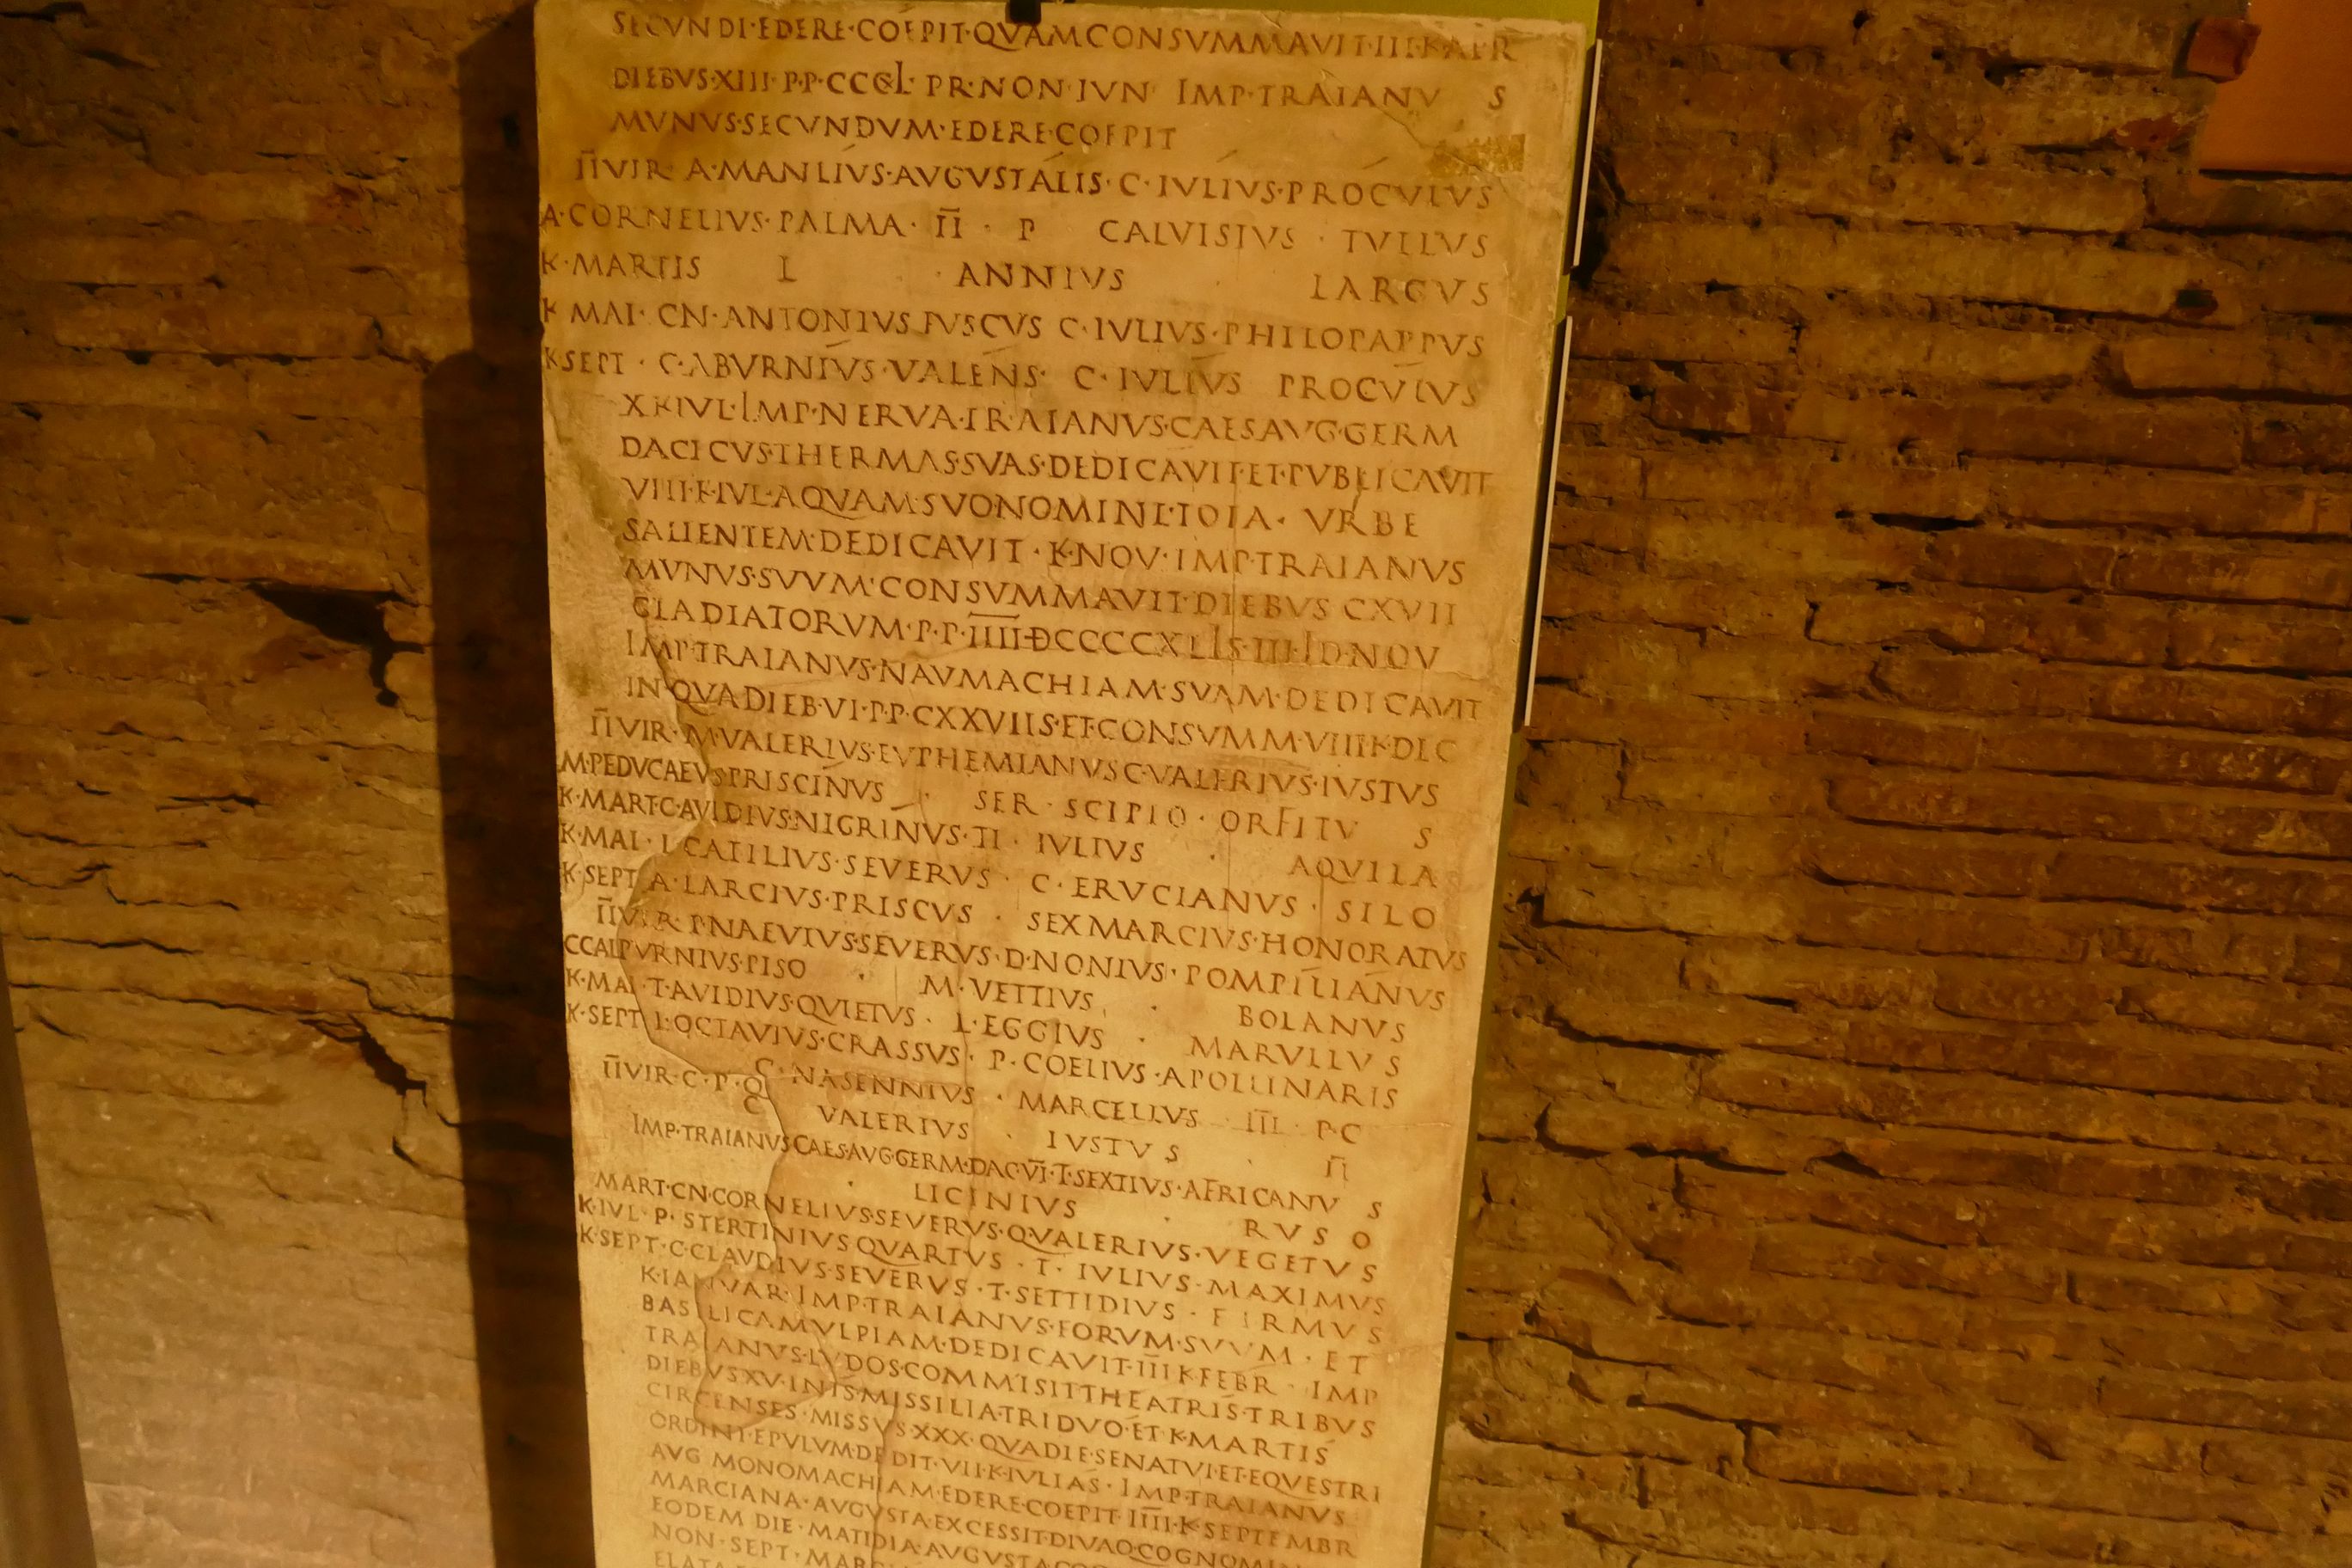 SECVNDI·EDERE·COEPIT·QVAM CONSVMMAVIT·IIII·K·APR
DIEBVS·XIII·P·P·CCCL·PR·NON·IVN IMP·TRAIANV S
MVNVS·SECVNDVM·EDERE·COEPIT
IIVIR A·MANLIVS·AVGVSTALIS·C·IVLIVS·PROCVLVS
A·CORNELIVS·PALMA·II·P CALVISIVS·TVLLVS
K·MARTIS L·ANNIVS·LARGVS
K MAI·CN·ANTONIVS FVSCVS C·IVLIVS·PHILOPAPPVS
K·SEPT·C·ABVRNIVS·VALENS·C·IVLIVS PROCVLVS
X K IVL·IMP·NERVA·TRAIANVS·CAES AVG·GERM
DACICVS·THERMAS·SVAS·DEDICAVIT·ET·PVBLICAVIT
VIIII·K·IVL·AQVAM·SVO NOMINE·TOTA·VRBE
SALIENTEM·DEDICAVIT·K·NOV·IMP·TRAIANVS
MVNVS·SVVM·CONSVMMAVIT·DIEBVS CXVII
GLADIATORVM·P·P·IIIIDCCCCXLIS·IIII·ID·NOV
IMP·TRAIANVS·NAVMACHIAM·SVAM·DEDICAVIT
IN QVA DIEB·VI·P·P·CXXVIIS·ET·CONSVMM·VIIII·K·DEC
IIVIR·M·VALERIVS·EVPHEMIANVS C·VALERIVS·IVSTVS
M·PEDVCAEVS PRISCINVS·SER·SCIPIO·ORFITV S
K·MART·C·AVIDIVS·NIGRINVS·TI·IVLIVS·AQVILA
K·MAI·L CATILIVS·SEVERVS·C·ERVCIANVS·SILO
K·SEPT A·LARCIVS·PRISCVS·SEX MARCIVS·HONORATVS
IIVIR·P·NAEVIVS·SEVERVS·D·NONIVS·POMPILIANVS
C CALPVRNIVS·PISO·M·VETTIVS·BOLANVS
K·MAI·T·AVIDIVS·QVIETVS·L·EGGIVS·MARVLLVS
K·SEPT L·OCTAVIVS·CRASSVS·P·COELIVS·APOLLINARIS
IIVIR·C·P·Q C·NASENNIVS·MARCELLVS·III·P·C
C VALERIVS·IVSTVS·II
IMP·TRAIANVS CAES·AVG·GERM·DAC·VI·T·SEXTIVS·AFRICANV S
·LICINIVS·RVSO
MART·CN·CORNELIVS·SEVERVS·Q VALERIVS·VEGETVS
K·IVL·P·STERTINIVS QVARTVS·T·IVLIVS·MAXIMVS
K·SEPT·C·CLAVDIVS·SEVERVS·T·SETTIDIVS·FIRMVS
K·IANVAR·IMP·TRAIANVS·FORVM·SVVM·ET
BASILICAM VLPIAM·DEDICAVIT·III K FEBR·IMP
TRAIANVS·LVDOS·COMMISIT THEATRIS·TRIBVS
DIEBVS XV·IN IS MISSILIA·TRIDVO·ET·K·MARTIS
CIRCENSES·MISSVS·XXX·QVA DIE·SENATVI·ET·EQVESTRI
ORDINI·EPVLVM·DEDIT·VII·K·IVLIAS·IMP·TRAIANVS
AVG MONOMACHIAM·EDERE·COEPIT·IIII·K·SEPTEMBR
MARCIANA·AVGVSTA·EXCESSIT·DIVAQ·COGNOMIN
EODEM DIE·MATIDIA·AVGVSTA·COG
NON·SEPT·MARC
ELATA